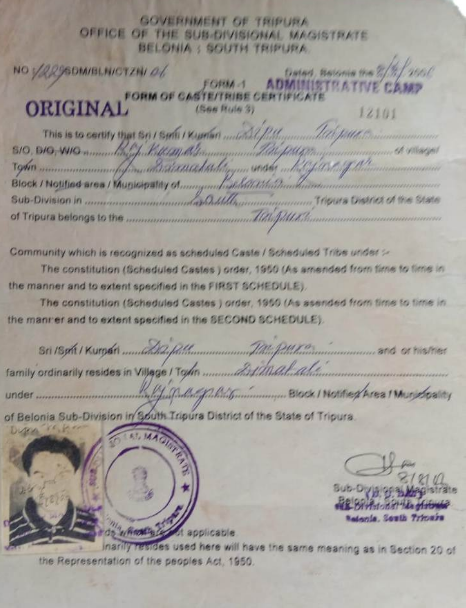 GOVERNMENT OF TRIPURA
OFFICE OF THE SUB-DIVISIONAL MAGISTRATE
BELONIA : SOUTH TRIPURA.
NO SDM/BLN/CTZN/06 Dated, Belonia the
FORM-1 ADMINISTRATIVE CAMP
FORM OF CASTE/TRIBE CERTIFICATE
ORIGINAL (See Rule 3) 12101
This is to certify that Sri / Smti / Kumari Dipu Tripura
S/O, D/O, W/O Raj Kumar Tripura of village/
Town Dimabali under Rajnagar
Block / Notified area / Municipality of Belonia
Sub-Division in South Tripura District of the State
of Tripura belongs to the Tripuri
Community which is recognized as scheduled Caste / Scheduled Tribe under :-
The constitution (Scheduled Castes) order, 1950 (As amended from time to time in
the manner and to extent specified in the FIRST SCHEDULE).
The constitution (Scheduled Castes) order, 1950 (As asended from time to time in
the manner and to extent specified in the SECOND SCHEDULE).
Sri /Smt / Kumari Dipu Tripura and or his/her
family ordinarily resides in Village / Town Dimabali
under Rajnagar Block / Notified Area / Municipality
of Belonia Sub-Division in South Tripura District of the State of Tripura.
MAGISTRATE
South Tripura
Sub-Divisional Magistrate
Belonia, South Tripura
Sub-Divisional Magistrate
Belonia, South Tripura
applicable
inarily resides used here will have the same meaning as in Section 20 of
the Representation of the peoples Act, 1950.